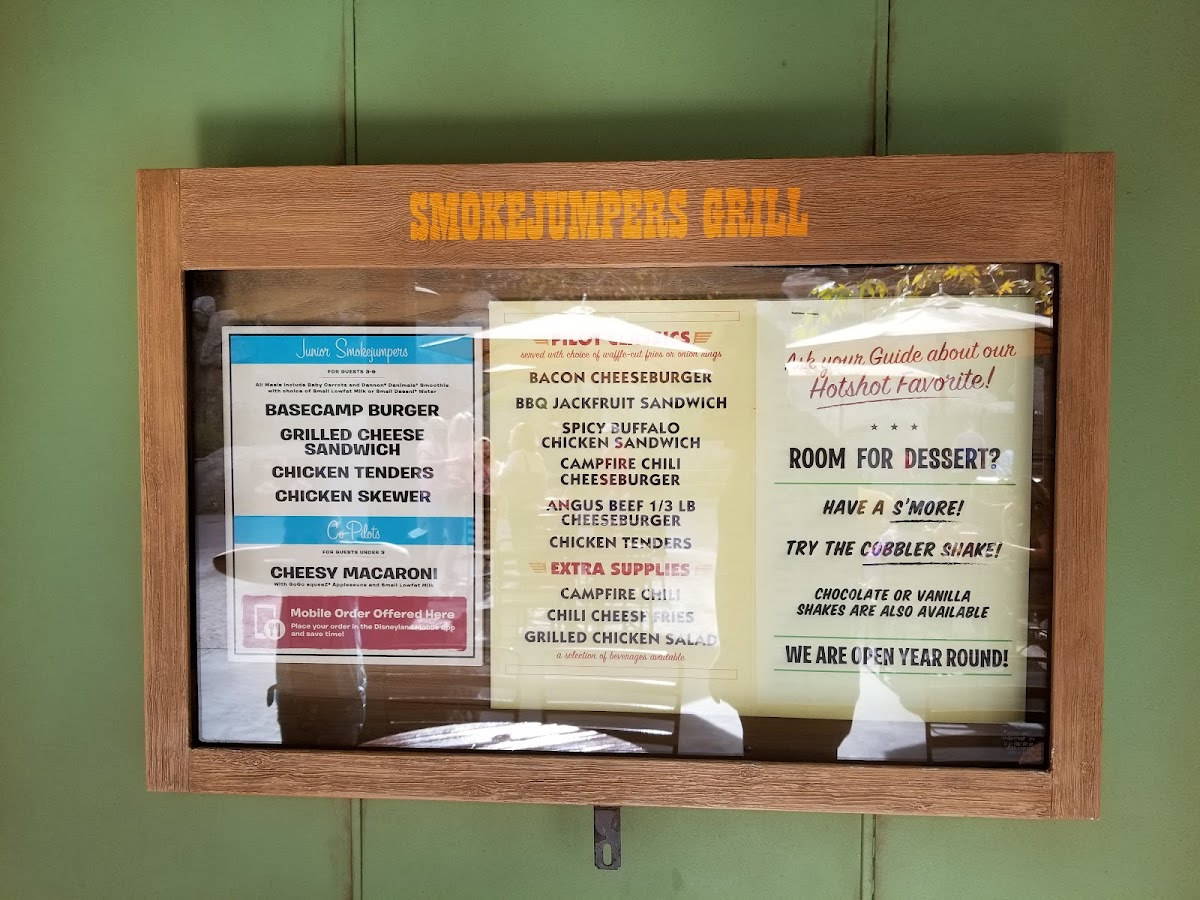 SMOKEJUMPERS GRILL
Junior Smokejumpers
FOR GUESTS 3-9
All Meals Include Baby Carrots and Dannon® Danimals® Smoothie
with choice of Small Lowfat Milk or Small Dasani® Water
BASECAMP BURGER
GRILLED CHEESE
SANDWICH
CHICKEN TENDERS
CHICKEN SKEWER
Co-Pilots
FOR GUESTS UNDER 3
CHEESY MACARONI
With GoGo squeeZ® Applesauce and Small Lowfat Milk
Mobile Order Offered Here
Place your order in the Disneyland Mobile App
and save time!
PILOT CLASSICS
served with choice of waffle-cut fries or onion rings
BACON CHEESEBURGER
BBQ JACKFRUIT SANDWICH
SPICY BUFFALO
CHICKEN SANDWICH
CAMPFIRE CHILI
CHEESEBURGER
ANGUS BEEF 1/3 LB
CHEESEBURGER
CHICKEN TENDERS
EXTRA SUPPLIES
CAMPFIRE CHILI
CHILI CHEESE FRIES
GRILLED CHICKEN SALAD
a selection of beverages available
Ask your Guide about our
Hotshot Favorite!
ROOM FOR DESSERT?
HAVE A S'MORE!
TRY THE COBBLER SHAKE!
CHOCOLATE OR VANILLA
SHAKES ARE ALSO AVAILABLE
WE ARE OPEN YEAR ROUND!